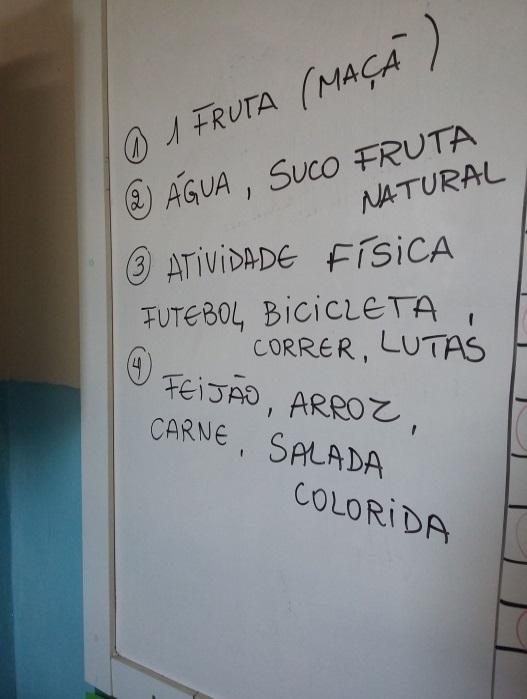 ① 1 FRUTA (MAÇÃ)
② ÁGUA, SUCO FRUTA
NATURAL
③ ATIVIDADE FÍSICA
FUTEBOL, BICICLETA,
CORRER, LUTAS
④
FEIJÃO, ARROZ,
CARNE, SALADA
COLORIDA